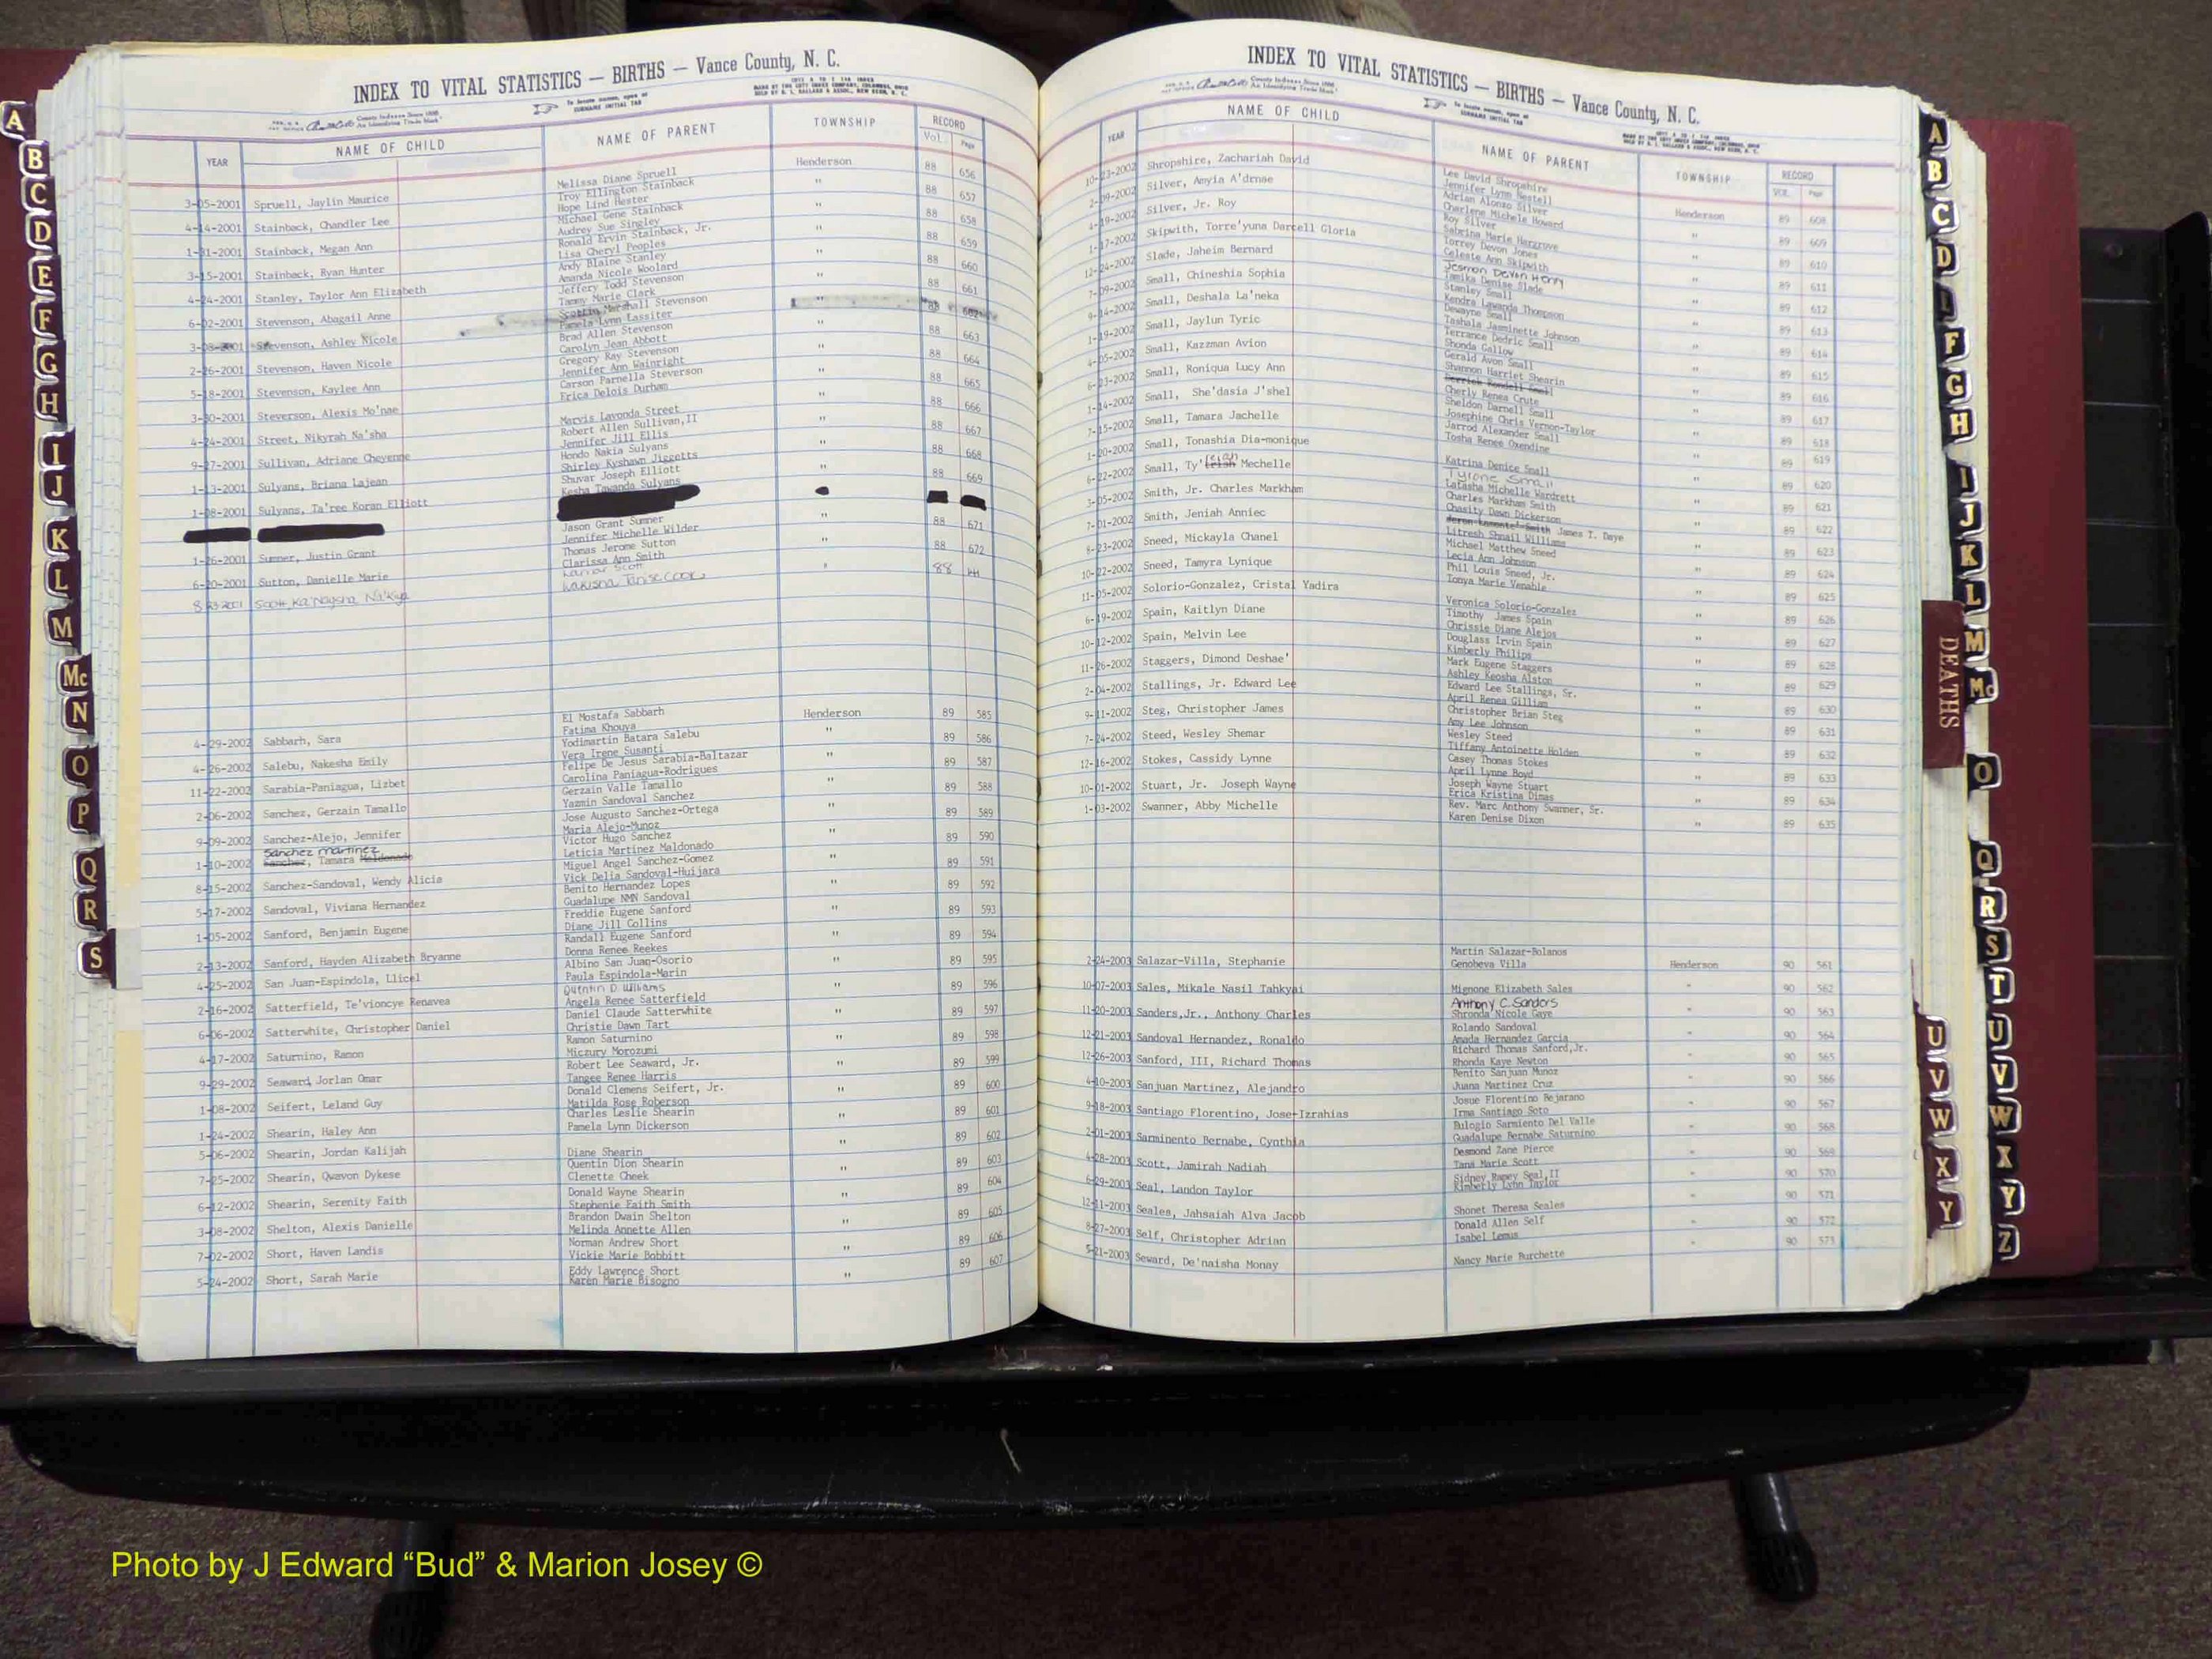 INDEX TO VITAL STATISTICS — BIRTHS — Vance County, N. C.
YEAR NAME OF CHILD NAME OF PARENT TOWNSHIP RECORD
Vol. Page
3-05-2001 Spruell, Jaylin Maurice Melissa Diane Spruell Henderson 88 656
4-14-2001 Stainback, Chandler Lee Troy Ellington Stainback " 88 657
Hope Lind Hester
1-31-2001 Stainback, Megan Ann Michael Gene Stainback " 88 658
Audrey Sue Singley
3-15-2001 Stainback, Ryan Hunter Ronald Ervin Stainback, Jr. " 88 659
Lisa Cheryl Peoples
4-24-2001 Stanley, Taylor Ann Elizabeth Andy Blaine Stanley " 88 660
Amanda Nicole Woolard
6-02-2001 Stevenson, Abagail Anne Jeffery Todd Stevenson " 88 661
Tammy Marie Clark
3-08-2001 Stevenson, Ashley Nicole Marshall Stevenson " 88 662
Pamela Lynn Lassiter
2-26-2001 Stevenson, Haven Nicole Brad Allen Stevenson " 88 663
Carolyn Jean Abbott
5-18-2001 Stevenson, Kaylee Ann Gregory Ray Stevenson " 88 664
Jennifer Ann Wainright
3-30-2001 Steverson, Alexis Mo'nae Carson Parnella Steverson " 88 665
Erica Delois Durham
4-24-2001 Street, Nikyrah Na'sha Marvis Lavonda Street " 88 666
9-27-2001 Sullivan, Adriane Cheyenne Robert Allen Sullivan,II " 88 667
Jennifer Jill Ellis
1-13-2001 Sulyans, Briana Lajean Hondo Nakia Sulyans " 88 668
Shirley Kyshawn Jiggetts
1-08-2001 Sulyans, Ta'ree Koran Elliott Shuvar Joseph Elliott " 88 669
Kesha Tawanda Sulyans
1-26-2001 Sumner, Justin Grant Jason Grant Sumner " 88 671
Jennifer Michelle Wilder
6-20-2001 Sutton, Danielle Marie Thomas Jerome Sutton " 88 672
Clarissa Ann Smith
8-23-2001 Scott, Ka'Naysha Na'Kya Lamar Scott " 88
Lakisha Tanise Cook
4-29-2002 Sabbarh, Sara El Mostafa Sabbarh Henderson 89 585
Fatima Khouya
4-26-2002 Salebu, Nakesha Emily Yodimartin Batara Salebu " 89 586
Vera Irene Susanti
11-22-2002 Sarabia-Paniagua, Lizbet Felipe De Jesus Sarabia-Baltazar " 89 587
Carolina Paniagua-Rodrigues
2-06-2002 Sanchez, Gerzain Tamallo Gerzain Valle Tamallo " 89 588
Yazmin Sandoval Sanchez
9-09-2002 Sanchez-Alejo, Jennifer Jose Augusto Sanchez-Ortega " 89 589
Maria Alejo-Munoz
Sanchez martinez
1-10-2002 Sanchez, Tamara Maldonado Victor Hugo Sanchez " 89 590
Leticia Martinez Maldonado
8-15-2002 Sanchez-Sandoval, Wendy Alicia Miguel Angel Sanchez-Gomez " 89 591
Vick Delia Sandoval-Huijara
5-17-2002 Sandoval, Viviana Hernandez Benito Hernandez Lopes " 89 592
Guadalupe NMN Sandoval
1-05-2002 Sanford, Benjamin Eugene Freddie Eugene Sanford " 89 593
Diane Jill Collins
2-13-2002 Sanford, Hayden Alizabeth Bryanne Randall Eugene Sanford " 89 594
Donna Renee Reekes
4-25-2002 San Juan-Espindola, Llicel Albino San Juan-Osorio " 89 595
Paula Espindola-Marin
2-16-2002 Satterfield, Te'vioncye Renavea Quentin D. Williams " 89 596
Angela Renee Satterfield
6-06-2002 Satterwhite, Christopher Daniel Daniel Claude Satterwhite " 89 597
Christie Dawn Tart
4-17-2002 Saturnino, Ramon Ramon Saturnino " 89 598
Miczury Morozumi
9-29-2002 Seaward, Jorlan Omar Robert Lee Seaward, Jr. " 89 599
Tangee Renee Harris
1-08-2002 Seifert, Leland Guy Donald Clemens Seifert, Jr. " 89 600
Matilda Rose Roberson
1-24-2002 Shearin, Haley Ann Charles Leslie Shearin " 89 601
Pamela Lynn Dickerson
5-06-2002 Shearin, Jordan Kalijah Diane Shearin " 89 602
7-25-2002 Shearin, Qwavon Dykese Quentin Dion Shearin " 89 603
Clenette Cheek
6-12-2002 Shearin, Serenity Faith Donald Wayne Shearin " 89 604
Stephenie Faith Smith
3-08-2002 Shelton, Alexis Danielle Brandon Dwain Shelton " 89 605
Melinda Annette Allen
7-02-2002 Short, Haven Landis Norman Andrew Short " 89 606
Vickie Marie Bobbitt
5-24-2002 Short, Sarah Marie Eddy Lawrence Short " 89 607
Karen Marie Bisogno
INDEX TO VITAL STATISTICS — BIRTHS — Vance County, N. C.
YEAR NAME OF CHILD NAME OF PARENT TOWNSHIP RECORD
VOL. Page
10-23-2002 Shropshire, Zachariah David Lee David Shropshire Henderson 89 608
Jennifer Lynn Nestell
2-09-2002 Silver, Amyia A'drnae Adrian Alonzo Silver " 89 609
Charlene Michele Howard
4-19-2002 Silver, Jr. Roy Roy Silver " 89 610
Sabrina Marie Hargrove
1-17-2002 Skipwith, Torre'yuna Darcell Gloria Torrey Devon Jones " 89 611
Celeste Ann Skipwith
12-24-2002 Slade, Jaheim Bernard Jesmon Devon Henry " 89 612
Tamika Denise Slade
7-09-2002 Small, Chineshia Sophia Stanley Small " 89 613
Kendra Lawanda Thompson
9-14-2002 Small, Deshala La'neka Dewayne Small " 89 614
Tashala Jasminette Johnson
1-19-2002 Small, Jaylun Tyric Terrance Dedric Small " 89 615
Shonda Gallow
4-05-2002 Small, Kazzman Avion Gerald Avon Small " 89 616
Shannon Harriet Shearin
6-23-2002 Small, Roniqua Lucy Ann " 89 617
Cherly Renea Crute
1-14-2002 Small, She'dasia J'shel Sheldon Darnell Small " 89 618
Josephine Chris Vernon-Taylor
7-15-2002 Small, Tamara Jachelle Jarrod Alexander Small " 619
Tosha Renee Oxendine
1-20-2002 Small, Tonashia Dia-monique Katrina Denice Small " 89 620
6-22-2002 Small, Ty'leigh Mechelle Tyrone Small " 89 621
Latasha Michelle Wardrett
3-05-2002 Smith, Jr. Charles Markham Charles Markham Smith " 89 622
Chasity Dawn Dickerson
7-01-2002 Smith, Jeniah Anniec James T. Daye " 89 623
Litresh Shnail Williams
8-23-2002 Sneed, Mickayla Chanel Michael Matthew Sneed " 89 624
Lecia Ann Johnson
10-22-2002 Sneed, Tamyra Lynique Phil Louis Sneed, Jr. " 89 625
Tonya Marie Venable
11-05-2002 Solorio-Gonzalez, Cristal Yadira Veronica Solorio-Gonzalez " 89 626
6-19-2002 Spain, Kaitlyn Diane Timothy James Spain " 89 627
Chrissie Diane Alejos
10-12-2002 Spain, Melvin Lee Douglass Irvin Spain " 89 628
Kimberly Philips
11-26-2002 Staggers, Dimond Deshae' Mark Eugene Staggers " 89 629
Ashley Keosha Alston
2-04-2002 Stallings, Jr. Edward Lee Edward Lee Stallings, Sr. " 89 630
April Renea Gilliam
9-11-2002 Steg, Christopher James Christopher Brian Steg " 89 631
Amy Lee Johnson
7-24-2002 Steed, Wesley Shemar Wesley Steed " 89 632
Tiffany Antoinette Holden
12-16-2002 Stokes, Cassidy Lynne Casey Thomas Stokes " 89 633
April Lynne Boyd
10-01-2002 Stuart, Jr. Joseph Wayne Joseph Wayne Stuart " 89 634
Erica Kristina Dimas
1-03-2002 Swanner, Abby Michelle Rev. Marc Anthony Swanner, Sr. " 89 635
Karen Denise Dixon
2-24-2003 Salazar-Villa, Stephanie Martin Salazar-Bolanos Henderson 90 561
Genobeva Villa
10-07-2003 Sales, Mikale Nasil Tahkyai Mignone Elizabeth Sales " 90 562
11-20-2003 Sanders,Jr., Anthony Charles Anthony C. Sanders " 90 563
Shronda Nicole Gaye
12-21-2003 Sandoval Hernandez, Ronaldo Rolando Sandoval " 90 564
Amada Hernandez Garcia
12-26-2003 Sanford, III, Richard Thomas Richard Thomas Sanford,Jr. " 90 565
Rhonda Kaye Newton
4-10-2003 Sanjuan Martinez, Alejandro Benito Sanjuan Munoz " 90 566
Juana Martinez Cruz
9-18-2003 Santiago Florentino, Jose Izrahias Josue Florentino Bejarano " 90 567
Irma Santiago Soto
2-01-2003 Sarminento Bernabe, Cynthia Eulogio Sarmiento Del Valle " 90 568
Guadalupe Bernabe Saturnino
4-28-2003 Scott, Jamirah Nadiah Desmond Zane Pierce " 90 569
Tana Marie Scott
6-29-2003 Seal, Landon Taylor Sidney Ramey Seal,II " 90 570
Kimberly Lynn Taylor
12-11-2003 Seales, Jahsaiah Alva Jacob Shonet Theresa Seales " 90 571
8-27-2003 Self, Christopher Adrian Donald Allen Self " 90 572
Isabel Lemus
5-21-2003 Seward, De'naisha Monay Nancy Marie Burchette " 90 573
A
B
C
D
E
F
G
H
I
J
K
L
M
Mc
N
O
P
Q
R
S
A
B
C
D
F
G
H
I
J
K
L
M
Mc
O
Q
R
S
T
U
V
W
X
Y
Z
DEATHS
U
V
W
X
Y
Photo by J Edward “Bud” & Marion Josey ©